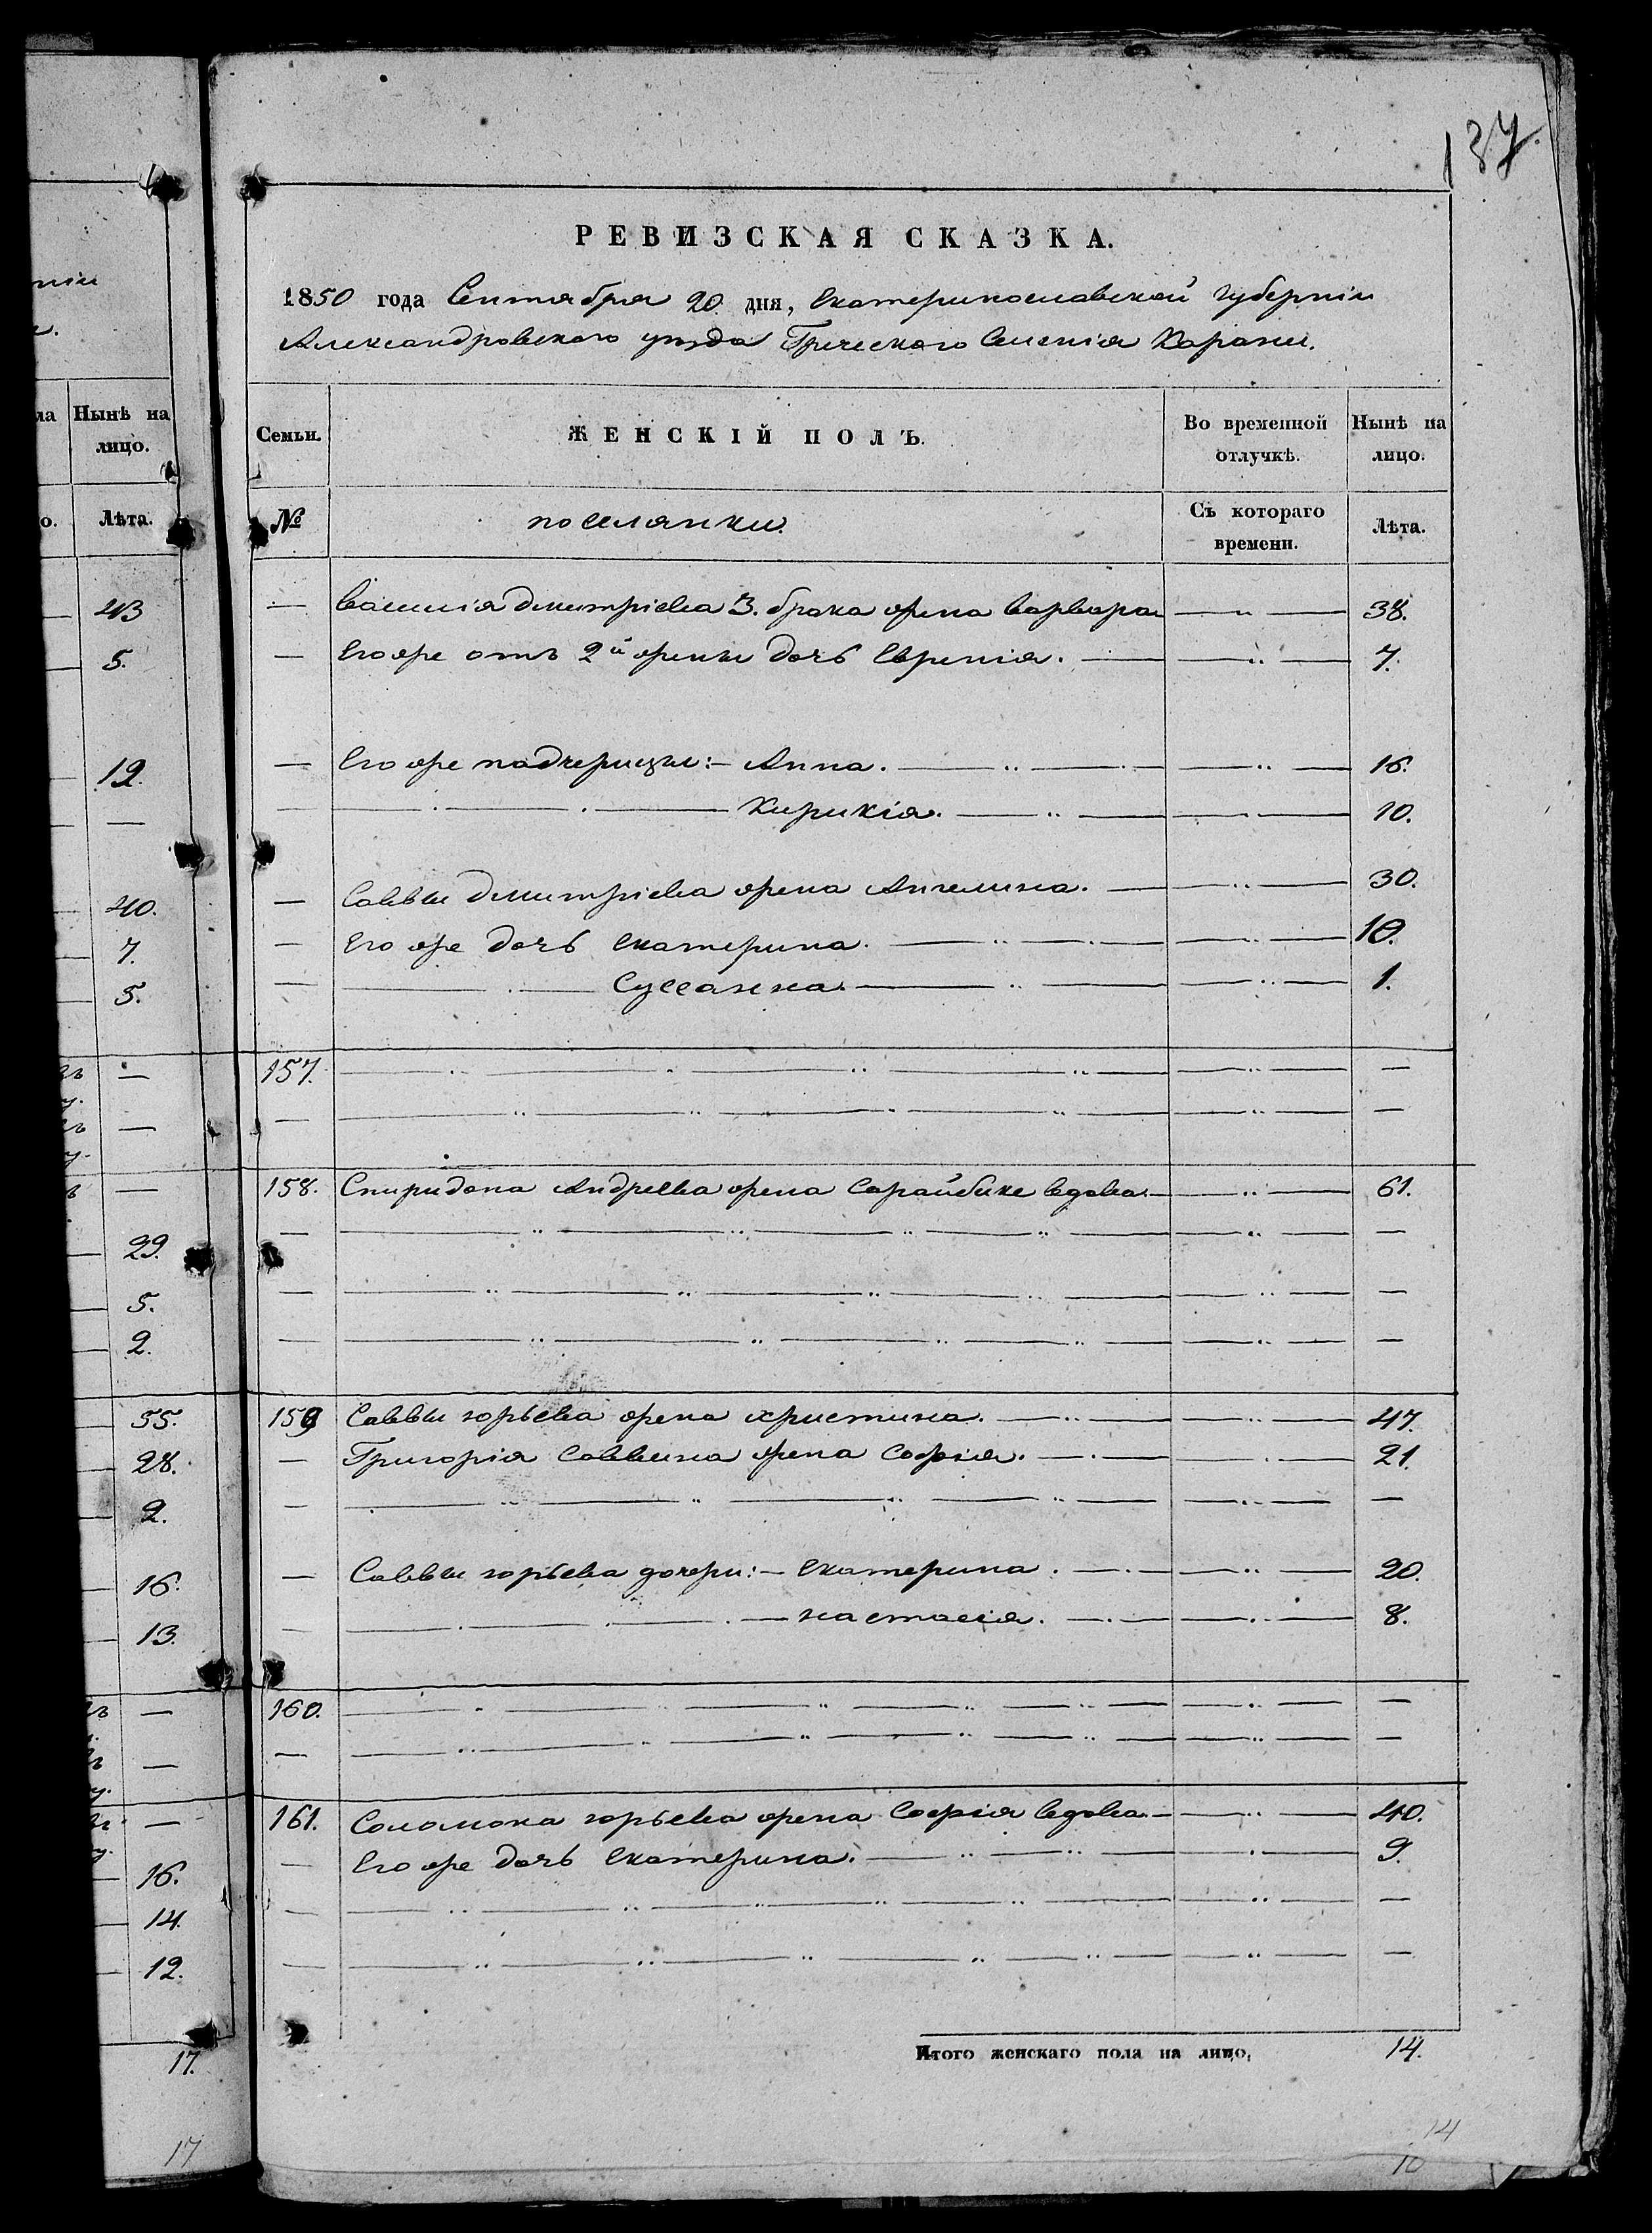 137.
РЕВИЗСКАЯ СКАЗКА.
1850 года Сентября 20 дня, Екатеринославской губерніи
Александровского уезда Греческого Селенія Карани.
Семьи.
ЖЕНСКІЙ ПОЛЪ.
Во временной отлучкѣ.
Нынѣ на лицо.
№
поселянки.
Съ котораго времени.
Лѣта.
— Василія Дмитріева 3. брака жена Варвара — " — 38.
— Его же отъ 2й жены дочь Евгенія. — " — 7.
— Его же падчерицы: – Анна. — " — 16.
— Кирикія. — " — 10.
— Саввы Дмитріева жена Ангелина. — " — 30.
— Его же дочь Екатерина. — " — 10.
— Сусанна. — " — 1.
157. — " — —
— — " — —
158. Спиридона Андреева жена Сарайбике вдова. — " — 61.
— — " — —
— — " — —
— — " — —
159 Саввы Юрьева жена Христина. — " — 47.
— Григорія Саввина жена Софія. — " — 21.
— — " — —
— Саввы Юрьева дочери: – Екатерина. — " — 20.
— Настасія. — " — 8.
160. — " — —
— — " — —
161. Соломона Юрьева жена Софія вдова. — " — 40.
— Его же дочь Екатерина. — " — 9.
— — " — —
— — " — —
Итого женскаго пола на лицо, 14.
14
10
Нынѣ на лицо.
Лѣта.
43
5.
12.
—
40.
7.
5.
—
—
—
29.
5.
2.
55.
28.
2.
16.
13.
—
—
—
16.
14.
12.
17.
17